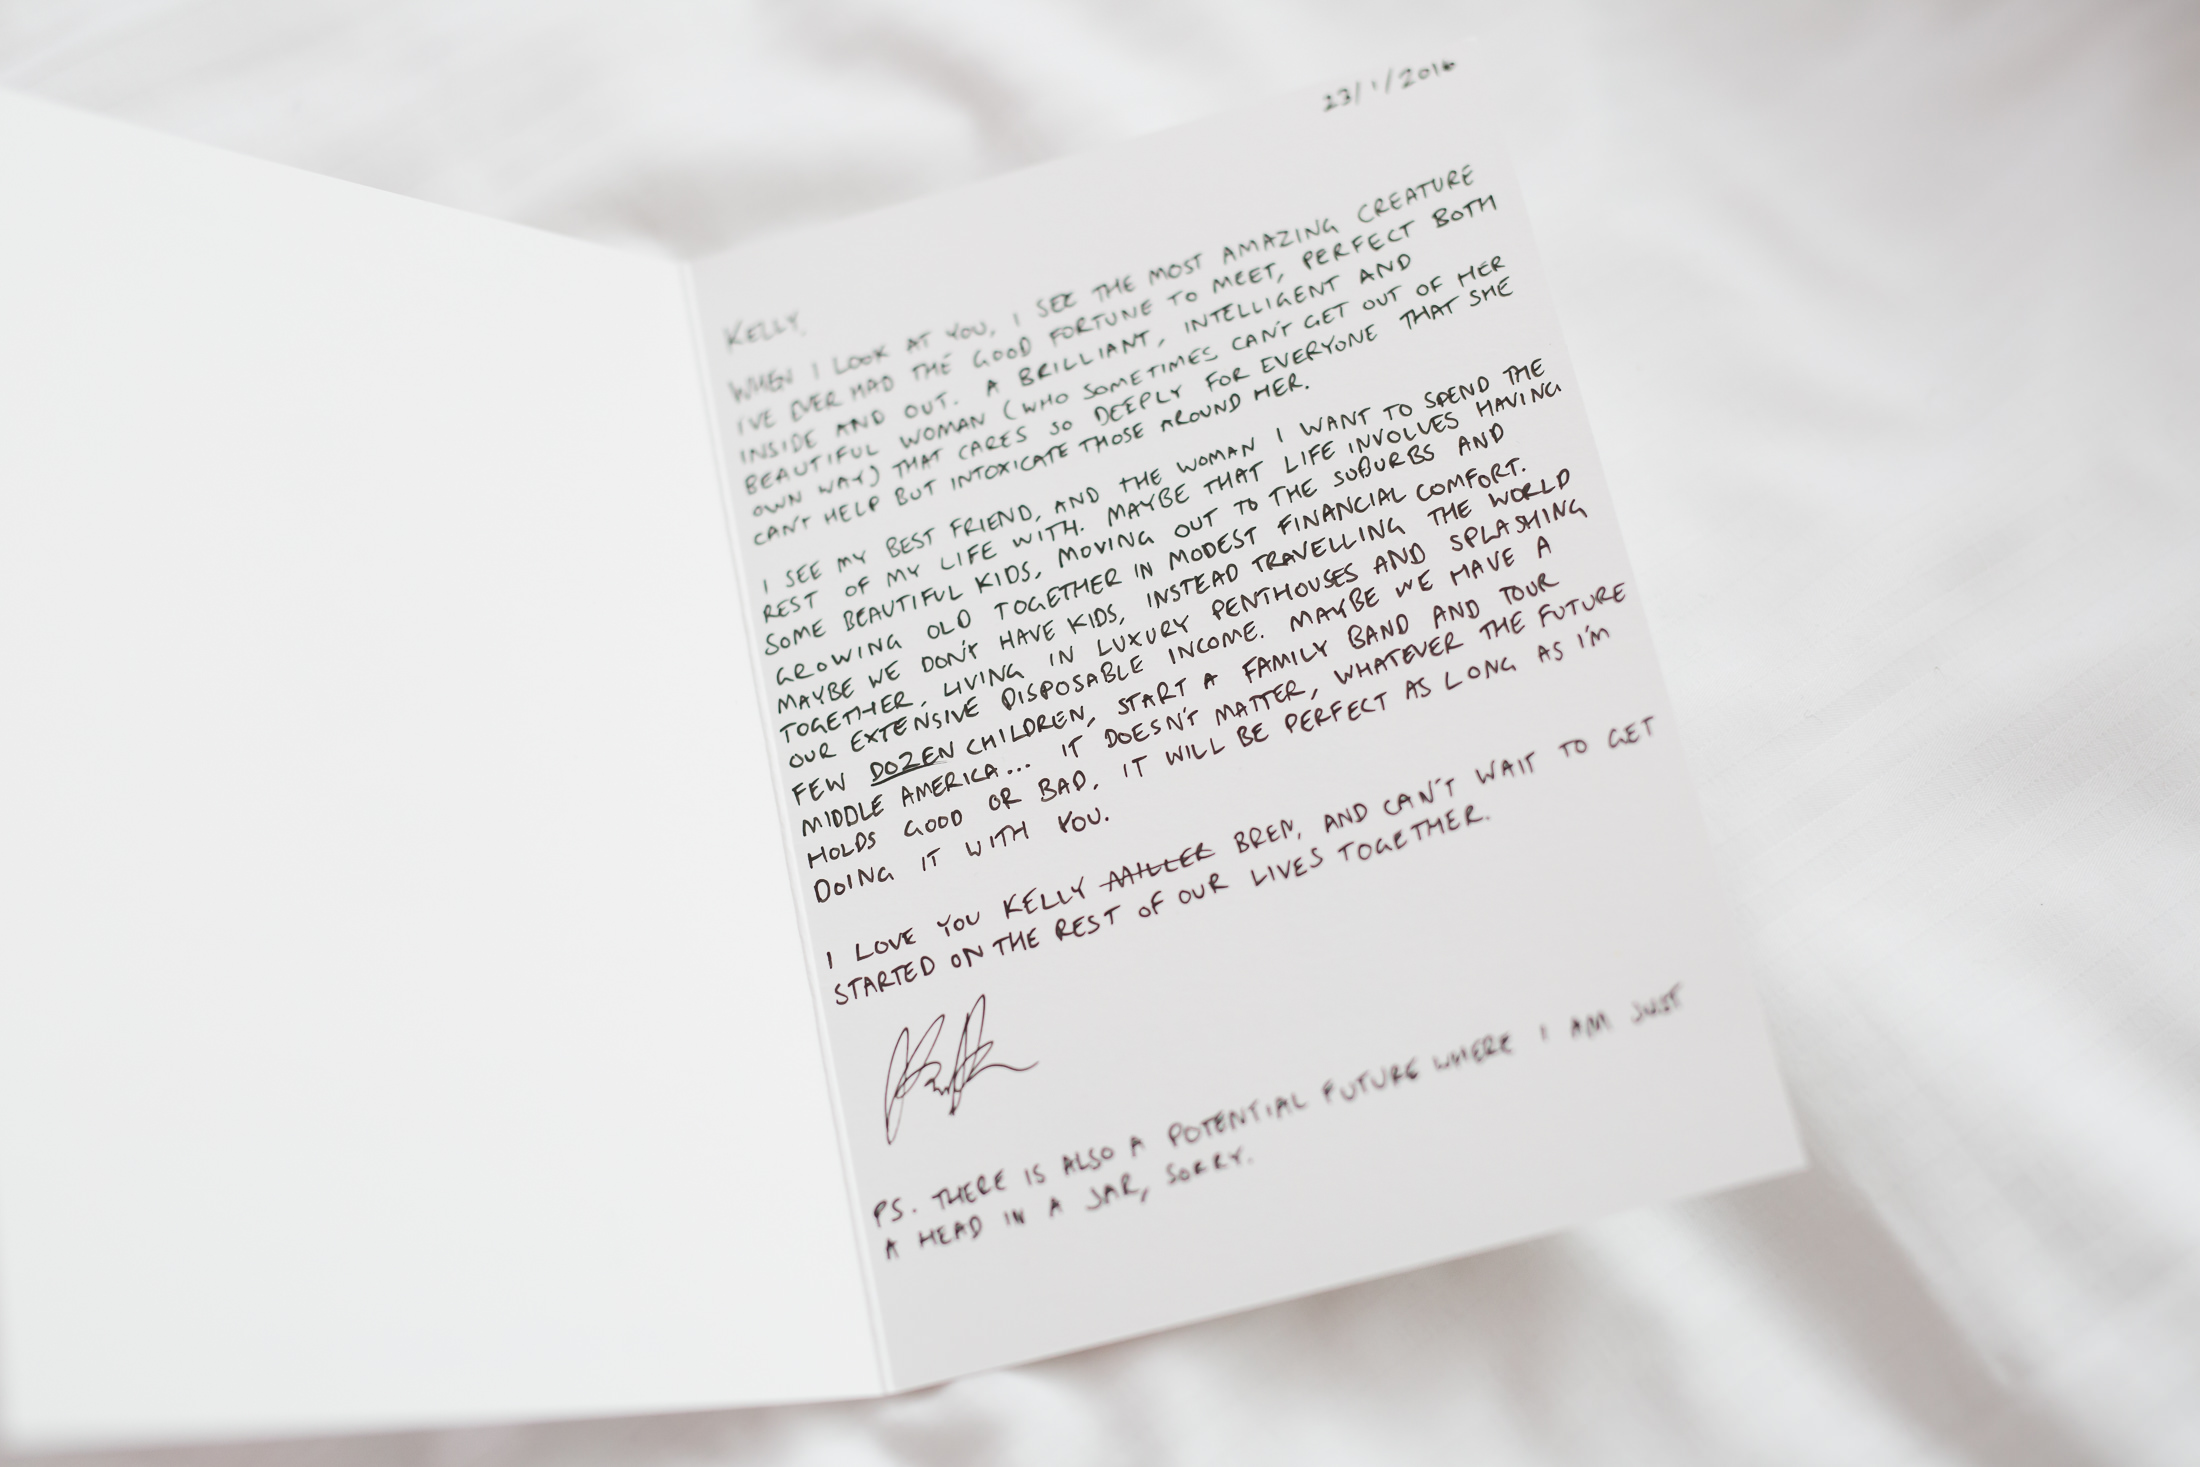 23/1/2016
KELLY,
WHEN I LOOK AT YOU, I SEE THE MOST AMAZING CREATURE
I'VE EVER HAD THE GOOD FORTUNE TO MEET, PERFECT BOTH
INSIDE AND OUT. A BRILLIANT, INTELLIGENT AND
BEAUTIFUL WOMAN (WHO SOMETIMES CAN'T GET OUT OF HER
OWN WAY) THAT CARES SO DEEPLY FOR EVERYONE THAT SHE
CAN'T HELP BUT INTOXICATE THOSE AROUND HER.
I SEE MY BEST FRIEND, AND THE WOMAN I WANT TO SPEND THE
REST OF MY LIFE WITH. MAYBE THAT LIFE INVOLVES HAVING
SOME BEAUTIFUL KIDS, MOVING OUT TO THE SUBURBS AND
GROWING OLD TOGETHER IN MODEST FINANCIAL COMFORT.
MAYBE WE DON'T HAVE KIDS, INSTEAD TRAVELLING THE WORLD
TOGETHER, LIVING IN LUXURY PENTHOUSES AND SPLASHING
OUR EXTENSIVE DISPOSABLE INCOME. MAYBE WE HAVE A
FEW DOZEN CHILDREN, START A FAMILY BAND AND TOUR
MIDDLE AMERICA... IT DOESN'T MATTER, WHATEVER THE FUTURE
HOLDS GOOD OR BAD, IT WILL BE PERFECT AS LONG AS I'M
DOING IT WITH YOU.
I LOVE YOU KELLY MILLER BREN, AND CAN'T WAIT TO GET
STARTED ON THE REST OF OUR LIVES TOGETHER.
PS. THERE IS ALSO A POTENTIAL FUTURE WHERE I AM JUST
A HEAD IN A JAR, SORRY.